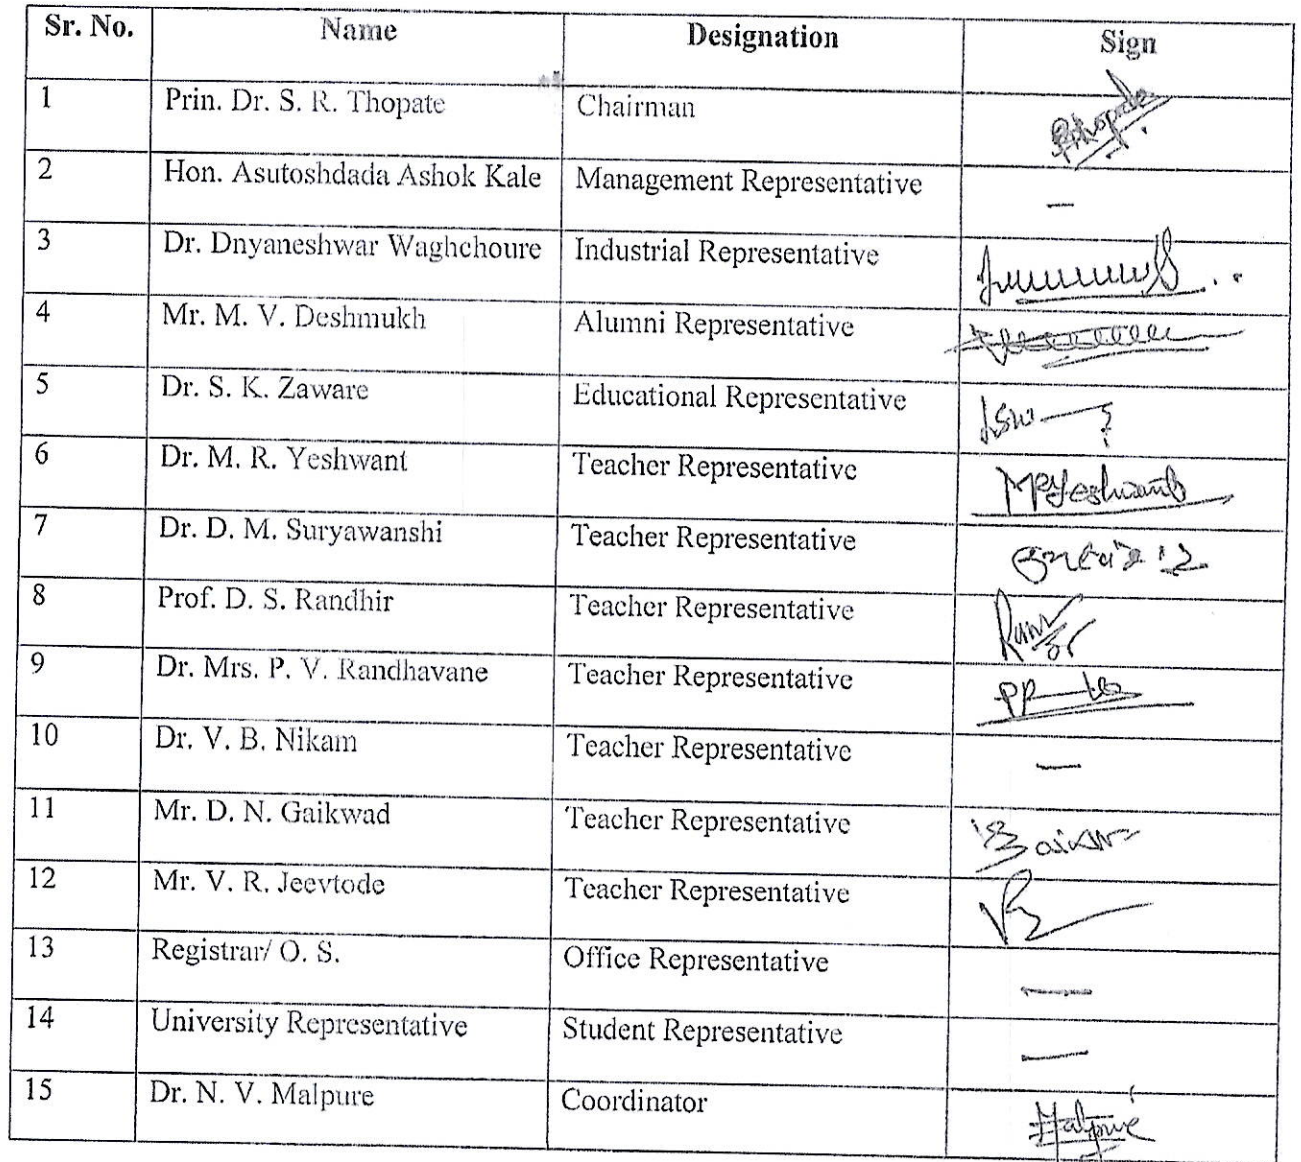 Sr. No. Name Designation Sign
1 Prin. Dr. S. R. Thopate Chairman
2 Hon. Asutoshdada Ashok Kale Management Representative —
3 Dr. Dnyaneshwar Waghchoure Industrial Representative
4 Mr. M. V. Deshmukh Alumni Representative
5 Dr. S. K. Zaware Educational Representative
6 Dr. M. R. Yeshwant Teacher Representative MRYeshwant
7 Dr. D. M. Suryawanshi Teacher Representative
8 Prof. D. S. Randhir Teacher Representative
9 Dr. Mrs. P. V. Randhavane Teacher Representative
10 Dr. V. B. Nikam Teacher Representative —
11 Mr. D. N. Gaikwad Teacher Representative
12 Mr. V. R. Jeevtode Teacher Representative
13 Registrar/ O. S. Office Representative —
14 University Representative Student Representative —
15 Dr. N. V. Malpure Coordinator Malpure